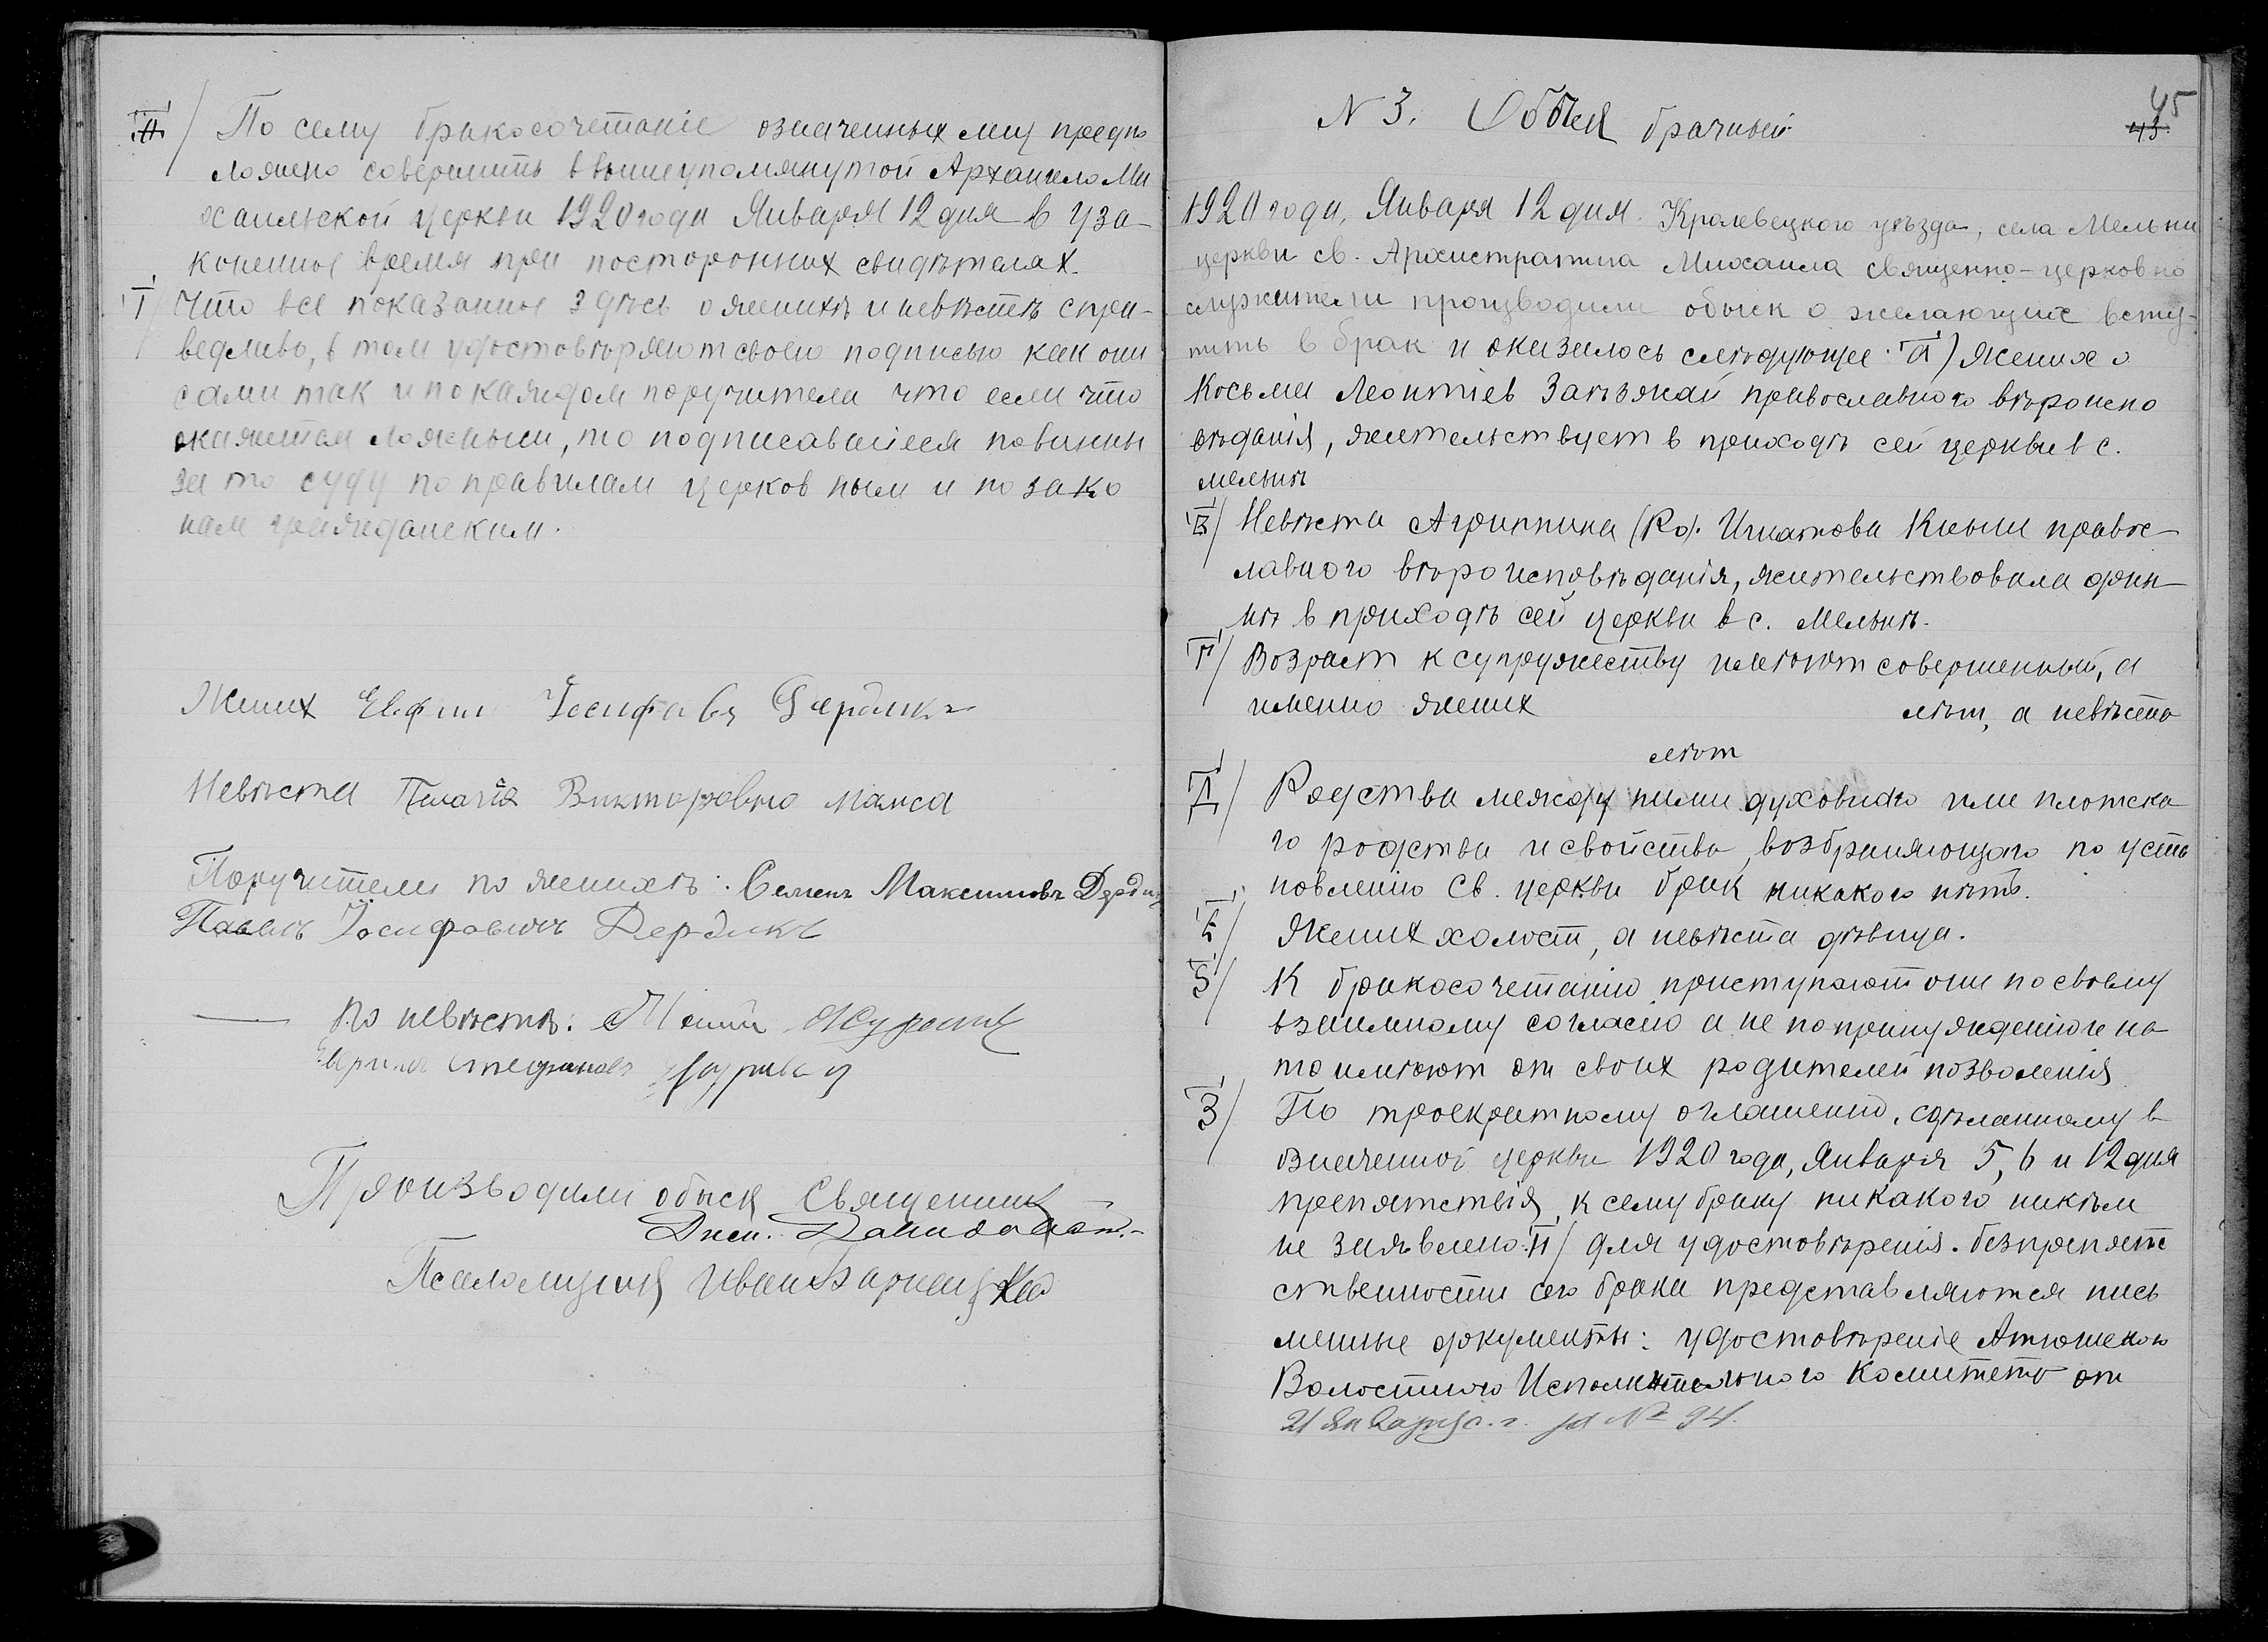 По сему бракосочетаніе означенных лиц предпо
ложено совершить в вышеупомянутой Архангело Ми
хаильской церкви 1920 года Января 12 дня в уза-
коненное время при посторонних свидѣтелях.
І/ Что все показанное здѣсь о женихѣ и невѣстѣ спра-
ведливо, в том удостовѣряют своею подписью как они
сами так и по каждом поручители что если что
окажется ложным, то подписавшіеся повинны
за то суду по правилам церковным и по зако
нам гражданским.
Жених Іосифовъ
Невѣста Викторовна
Поручители по женихѣ: Семенъ Максимовъ
Павелъ Іосифовичъ Дердикъ
— по невѣстѣ:
Стефановъ
Производили обыск Священник
Псаломщик Иван
45
43.
N 3. Обыск брачный
1920 года, Января 12 дня. Кролевецкого уѣзда, села Мельни
церкви св. Архистратига Михаила священно-церковно
служители производили обыск о желающих всту-
пить в брак и оказалось слѣдующее: а) Жених
Косьма Леонтіев православного вѣроиспо
вѣданія, жительствует в приходѣ сей церкви в с.
Мельнѣ
В/ Невѣста Агриппина Игнатова правос-
лавного вѣроисповѣданія, жительствовала дон-
нѣ в приходѣ сей церкви в с. Мельнѣ.
Г/ Возраст к супружеству имѣют совершенный, а
именно жених лѣт, а невѣста
лѣт
Д/ Родства между ними духовного или плотска
го родства и свойства, возбраняющаго по уста
новленію св. церкви брак никакого нѣтъ.
Е/ Жених холост, а невѣста дѣвица.
Ѕ/ К бракосочетанію приступают они по своему
взаимному согласію а не по принужденію и на
то имѣют от своих родителей позволенія
З/ По троекратному оглашенію, сдѣланному в
означенной церкви 1920 года, Января 5, 6 и 12 дня
препятствія к сему браку никакого никѣм
не заявлено. И/ Для удостовѣренія безпрепятс
ственности сего брака представляются пись
менные документы: удостовѣреніе Атюшского
Волостного Исполнительного Комитета от
21 Января с. г. за № 94.